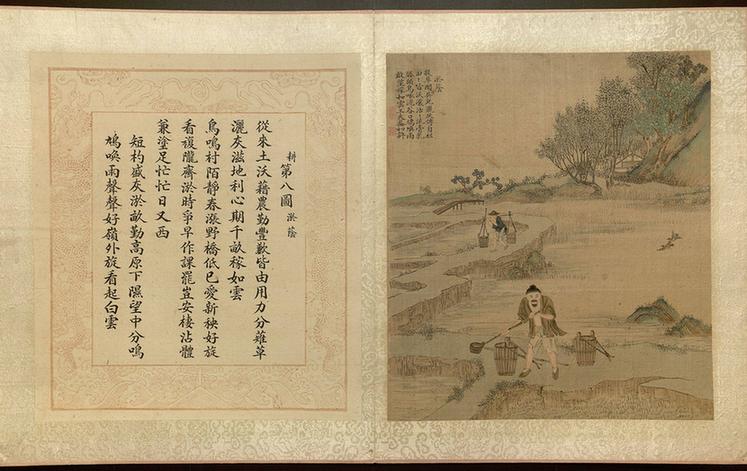 淤蔭
耕第八圖 淤蔭
從來土沃藉農勤豐歉皆由用力分薙草
灑灰滋地利心期千畝稼如雲
烏鳴村陌靜春漲野橋低已愛新秧好旋
看複隴齊淤時爭早作課罷豈安棲沾體
兼塗足忙忙日又西
短杓盛灰淤畝勤高原下濕望中分鳴
鳩喚雨聲聲好嶺外旋看起白雲